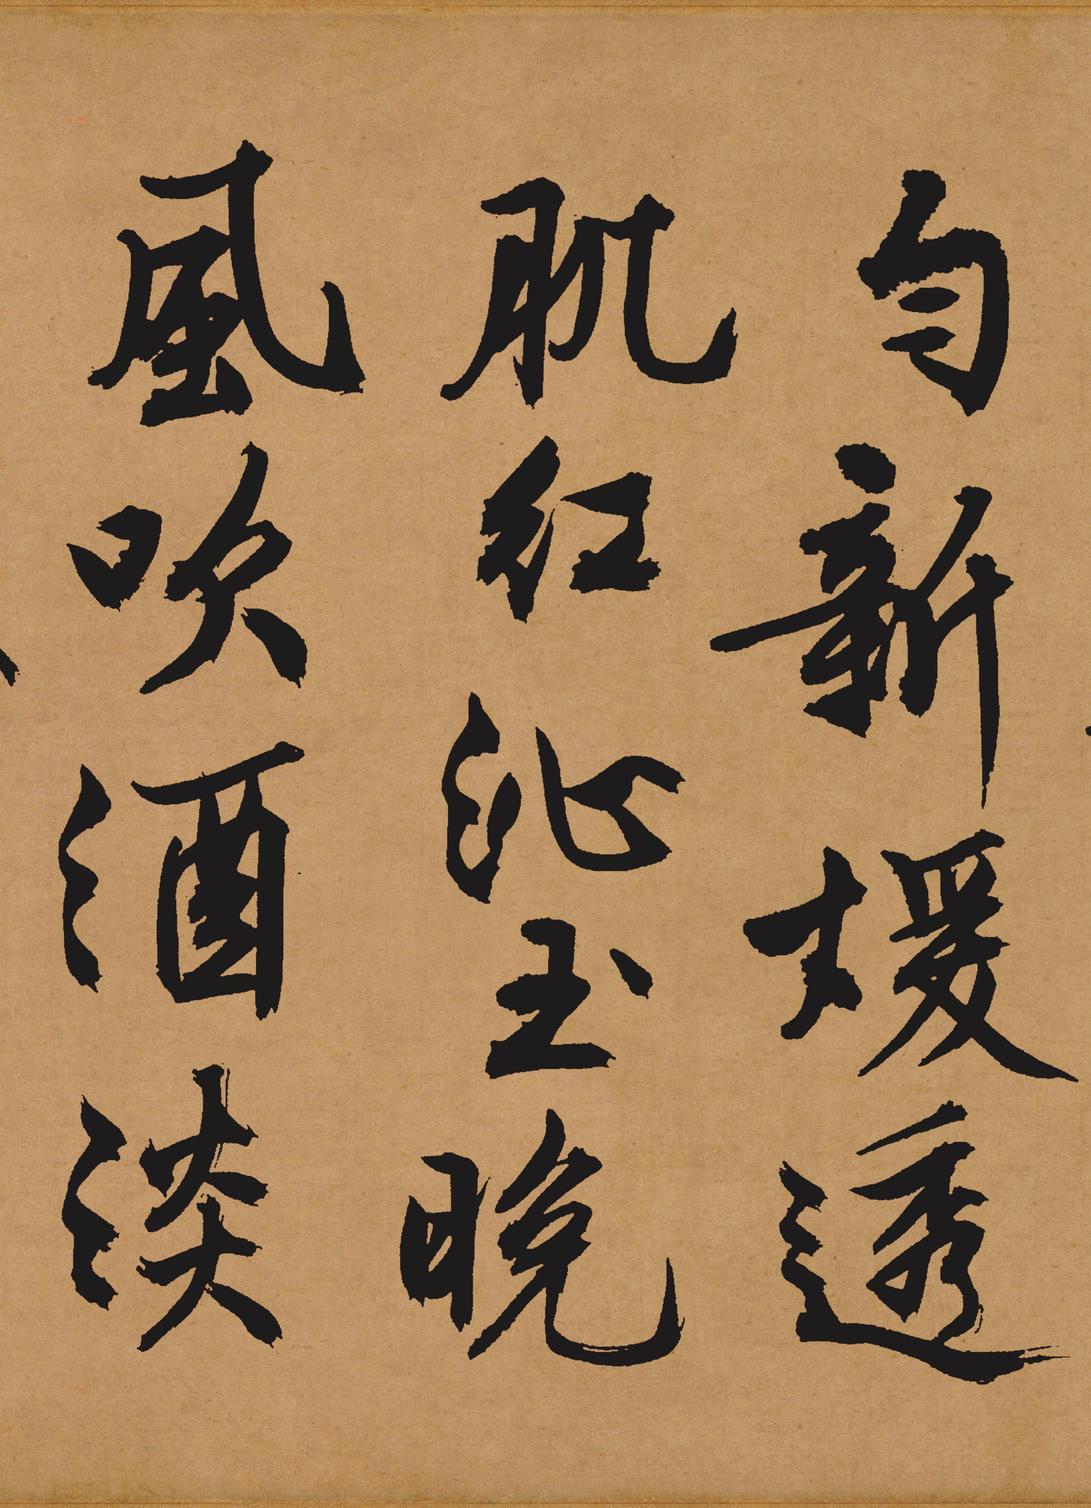 匀新煖透
肌红沁玉晚
風吹酒淡